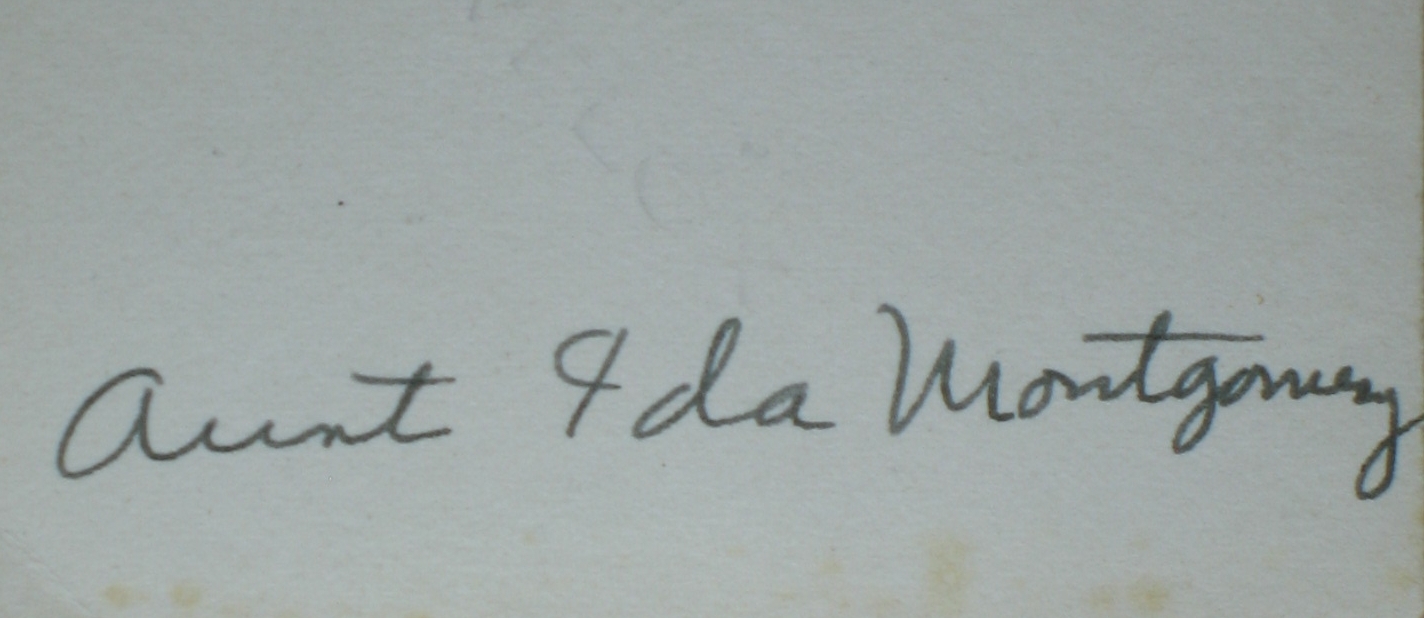 Aunt Ida Montgomery